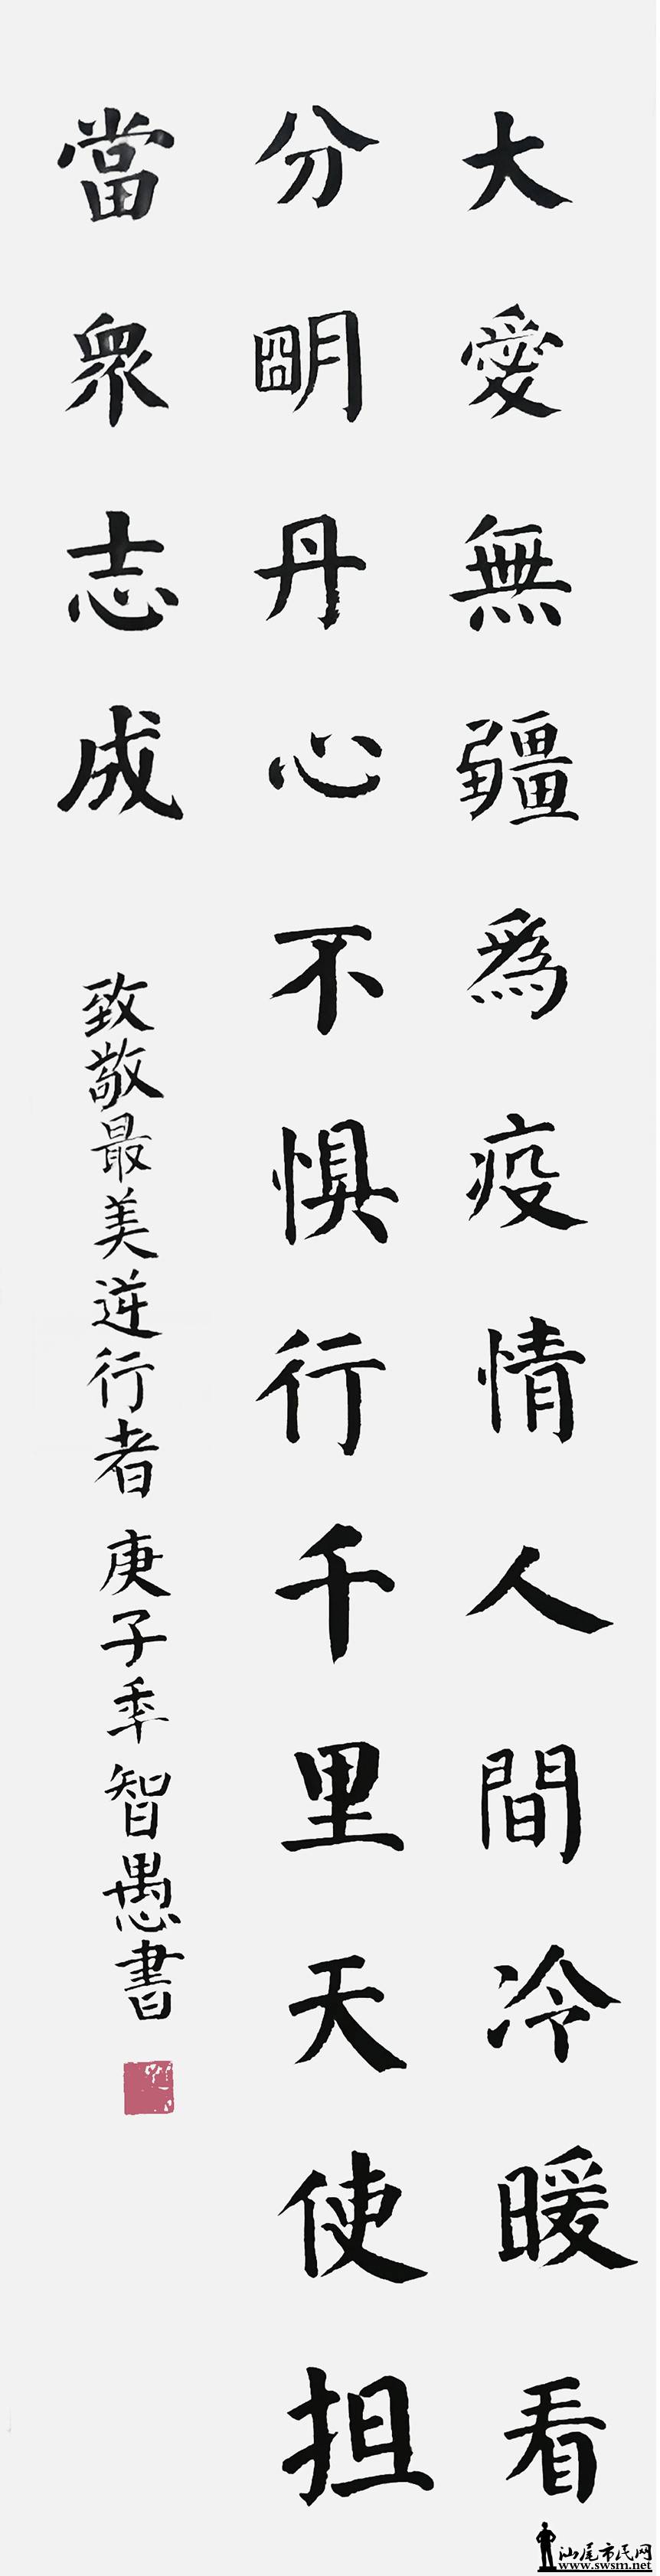 大愛無疆為疫情人間冷暖看
分朙丹心不惧行千里天使担
當衆志成
致敬最美逆行者 庚子年 智愚書
汕尾市民网
www.swsm.net